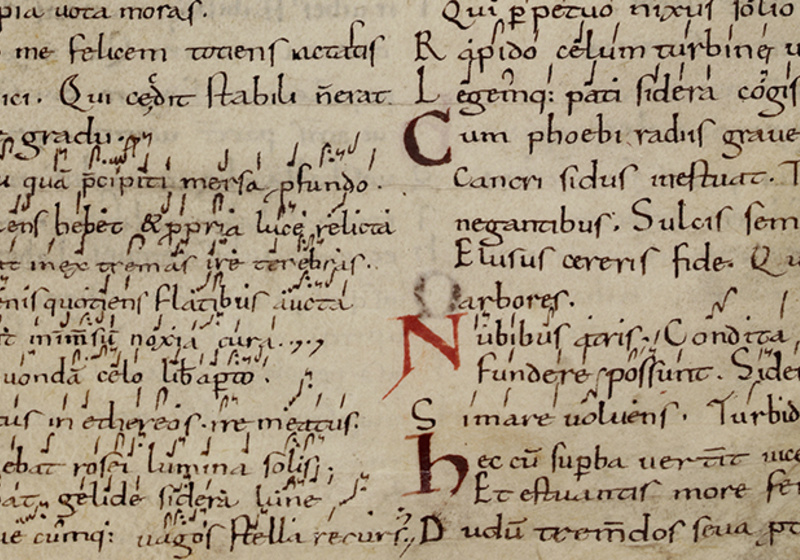 pia uota moras.
me felicem totiens iactatis
ici. Qui cędit stabili n̄ erat
gradu.
quā p̄cipiti mersa ꝓfundo.
ens hebet & ꝓpria luce relicta
inex tremas ire tenebras.
quotiens flatibus aucta
noxia cura.
uondā cęlo lib̄
in ethereos. ire meatus.
ebat rosei lumina solis;
gelide sidera lune
uagos stella recurs
Qui ꝑpetuo nixus solio
Rapido cęlum turbine
Legemq: pati sidera cogis
Cum phoebi radiis graue
Cancri sidus inestuat.
negantibus. Sulcis sem
Elusus cereris fide. Qu
arbores.
Nubibus atris. Condita
fundere possunt. Side
Si mare uoluens. Turbid
hec cū supba uert̄it uice
Et estuantis more fer
Dudū trem̄dos seua